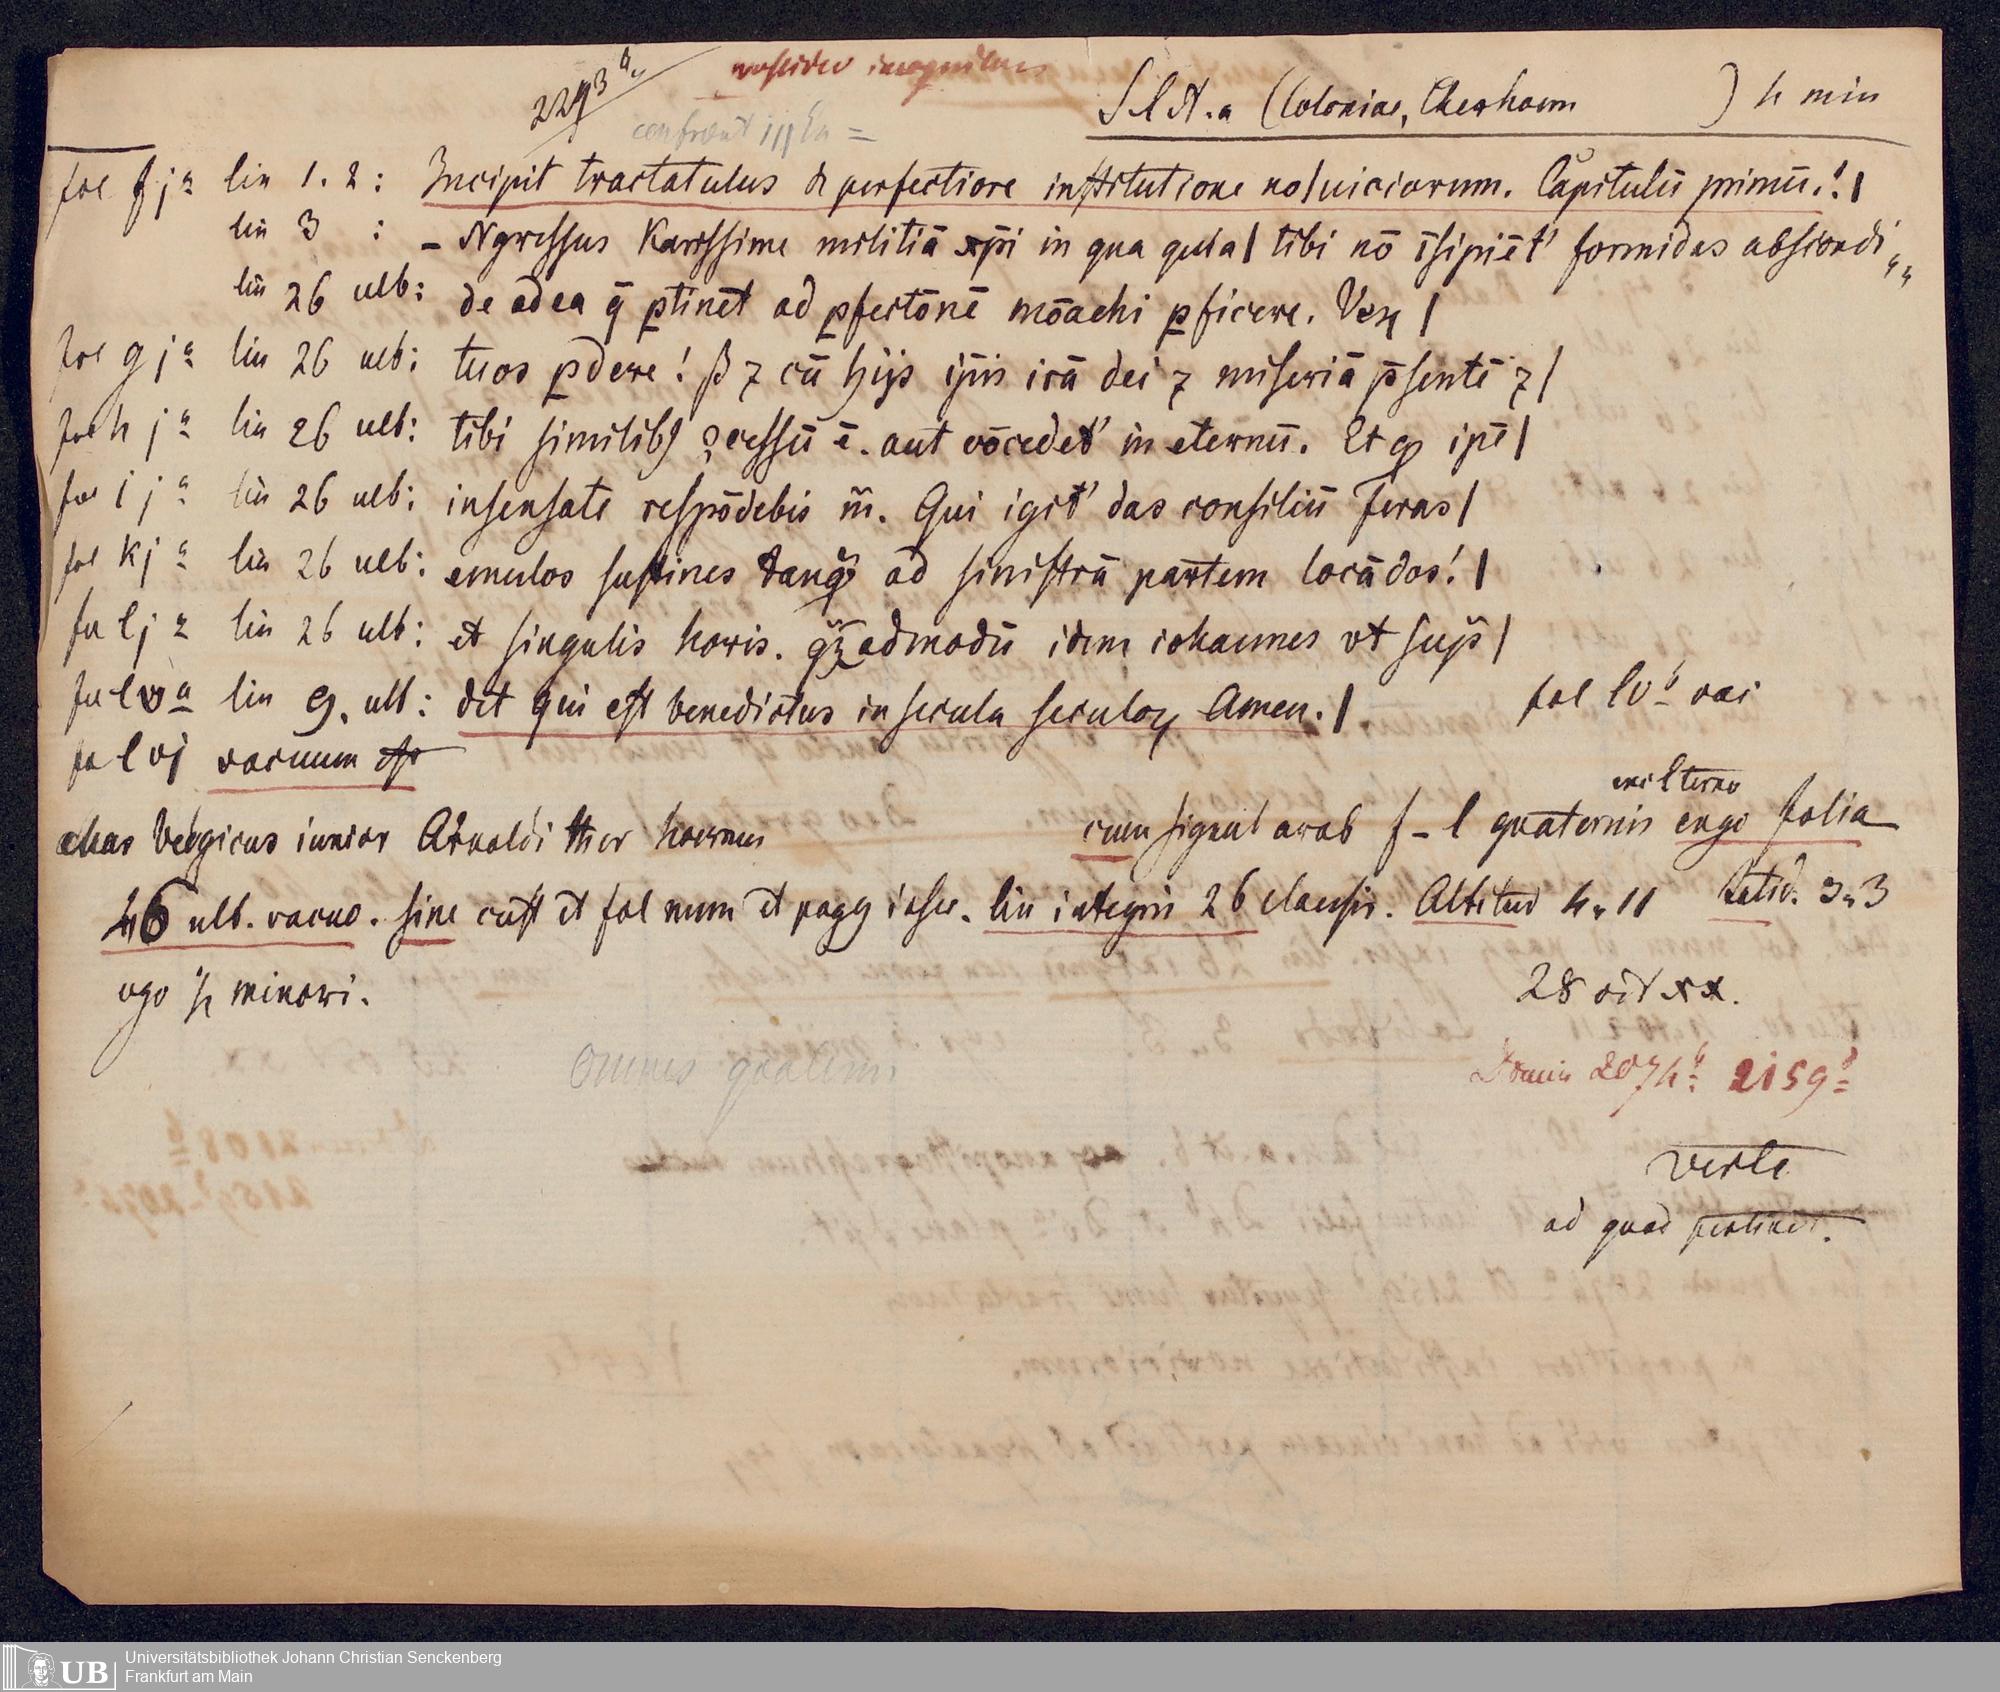 2273 a
S l et a (Coloniae, therhoern ) 4 min
fol f j a lin 1. 2: Incipit tractatulus de perfectiore institutione no/uiciorum. Capitulū primū.!|
lin 3 : – Ngressus karissime militiā xp̄i in qua gula| tibi nō īsipiēt' formidas abscondi
lin 26 ult: de ad ea q̄ ptinēt ad pfectōnē mōachi pficere.
fol g j a lin 26 ult: tuos pdere! ꝫ 7 cū hijs ip̄is irā dei 7 miseriā p̄sentē 7|
fol h j a lin 26 ult: tibi similibꝫ ꝯcessū ē. aut cōcedet' in eternū. Et ip̄e|
fol i j a lin 26 ult: insensate respōdebis m̄. Qui igit' das consiliū feras|
fol k j a lin 26 ult: emulos sustines tanq̄ ad sinistrā partem locādos!|
fol l j a lin 26 ult: et singulis horis. admodū idem iohannes vt|
fol l v a lin 9. ult: dēt qui est benedictus in secula seculoꝝ Amen.| fol lv b vac
fol l vj vacuum
chas belgicus iunior Arnoldi ther hoernen cum signat arab f – l quaternis et l terno ergo folia
46 ult. vacuo. sine cust et fol num et pagg inscr. lin integris 26 clausis. Altitud 4,, 11 Latid. 3,, 3
ergo 4 minori.
28 oct xx.
omnes quaterni
2074 b 2159 b
verte
ad quod pertinet.
UB Universitätsbibliothek Johann Christian Senckenberg
Frankfurt am Main